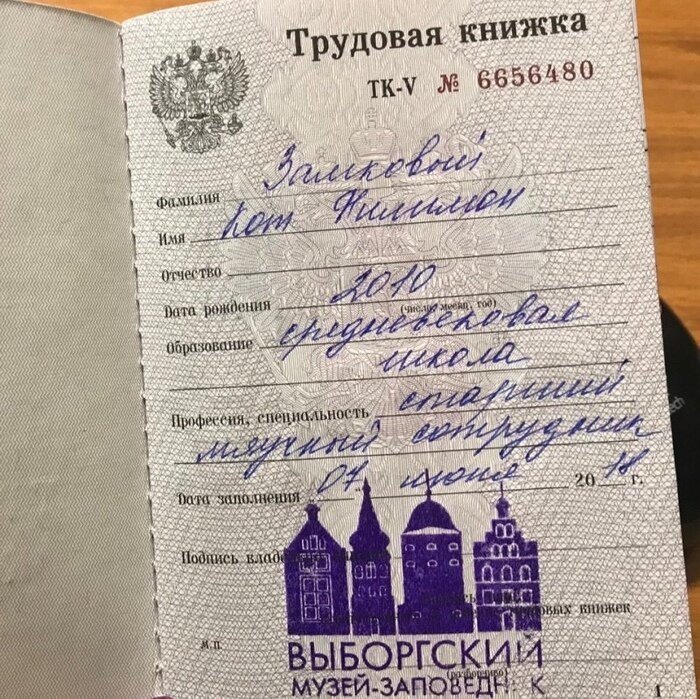 Трудовая книжка
ТК-V № 6656480
Фамилия Замковый
Имя Кот Филимон
Отчество
Дата рождения 2010
(число, месяц, год)
Образование средневековая
школа
Профессия, специальность старший
мяучный сотрудник
Дата заполнения 07 июня 2018 г.
Подпись владельца
трудовых книжек
м.п.
(разборчиво)
ВЫБОРГСКИЙ
МУЗЕЙ-ЗАПОВЕДНИК